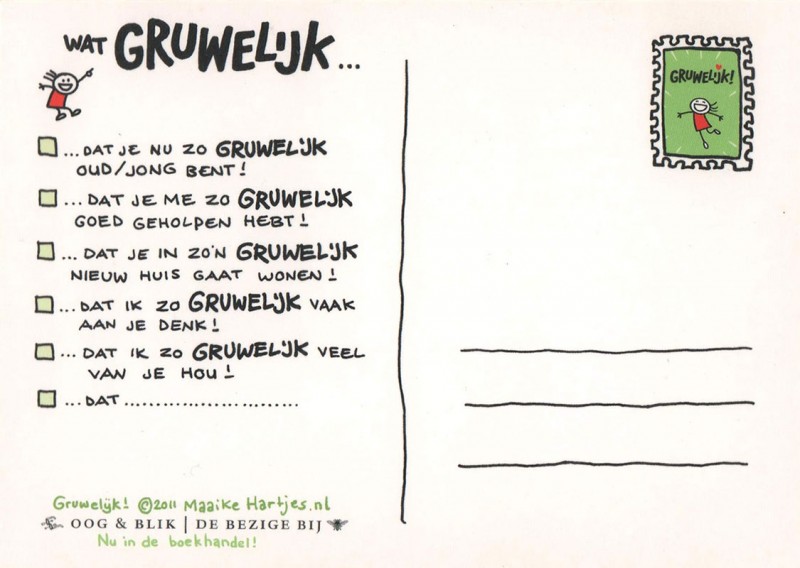 WAT GRUWELIJK...
...DAT JE NU ZO GRUWELIJK
OUD/JONG BENT!
...DAT JE ME ZO GRUWELIJK
GOED GEHOLPEN HEBT!
...DAT JE IN ZO'N GRUWELIJK
NIEUW HUIS GAAT WONEN!
...DAT IK ZO GRUWELIJK VAAK
AAN JE DENK!
...DAT IK ZO GRUWELIJK VEEL
VAN JE HOU!
...DAT..........................
Gruwelijk! ©2011 Maaike Hartjes.nl
OOG & BLIK | DE BEZIGE BIJ
Nu in de boekhandel!
GRUWELIJK!